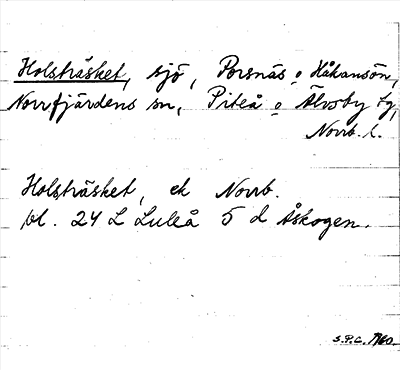 Holsträsket, sjö, Porsnäs o Håkansön,
Norrfjärdens sn, Piteå o Älvsby tg,
Norrb. l.
Holsträsket, ek Norrb.
bl. 24 L Luleå 5 d Åskogen.
S.P.C. 1960.